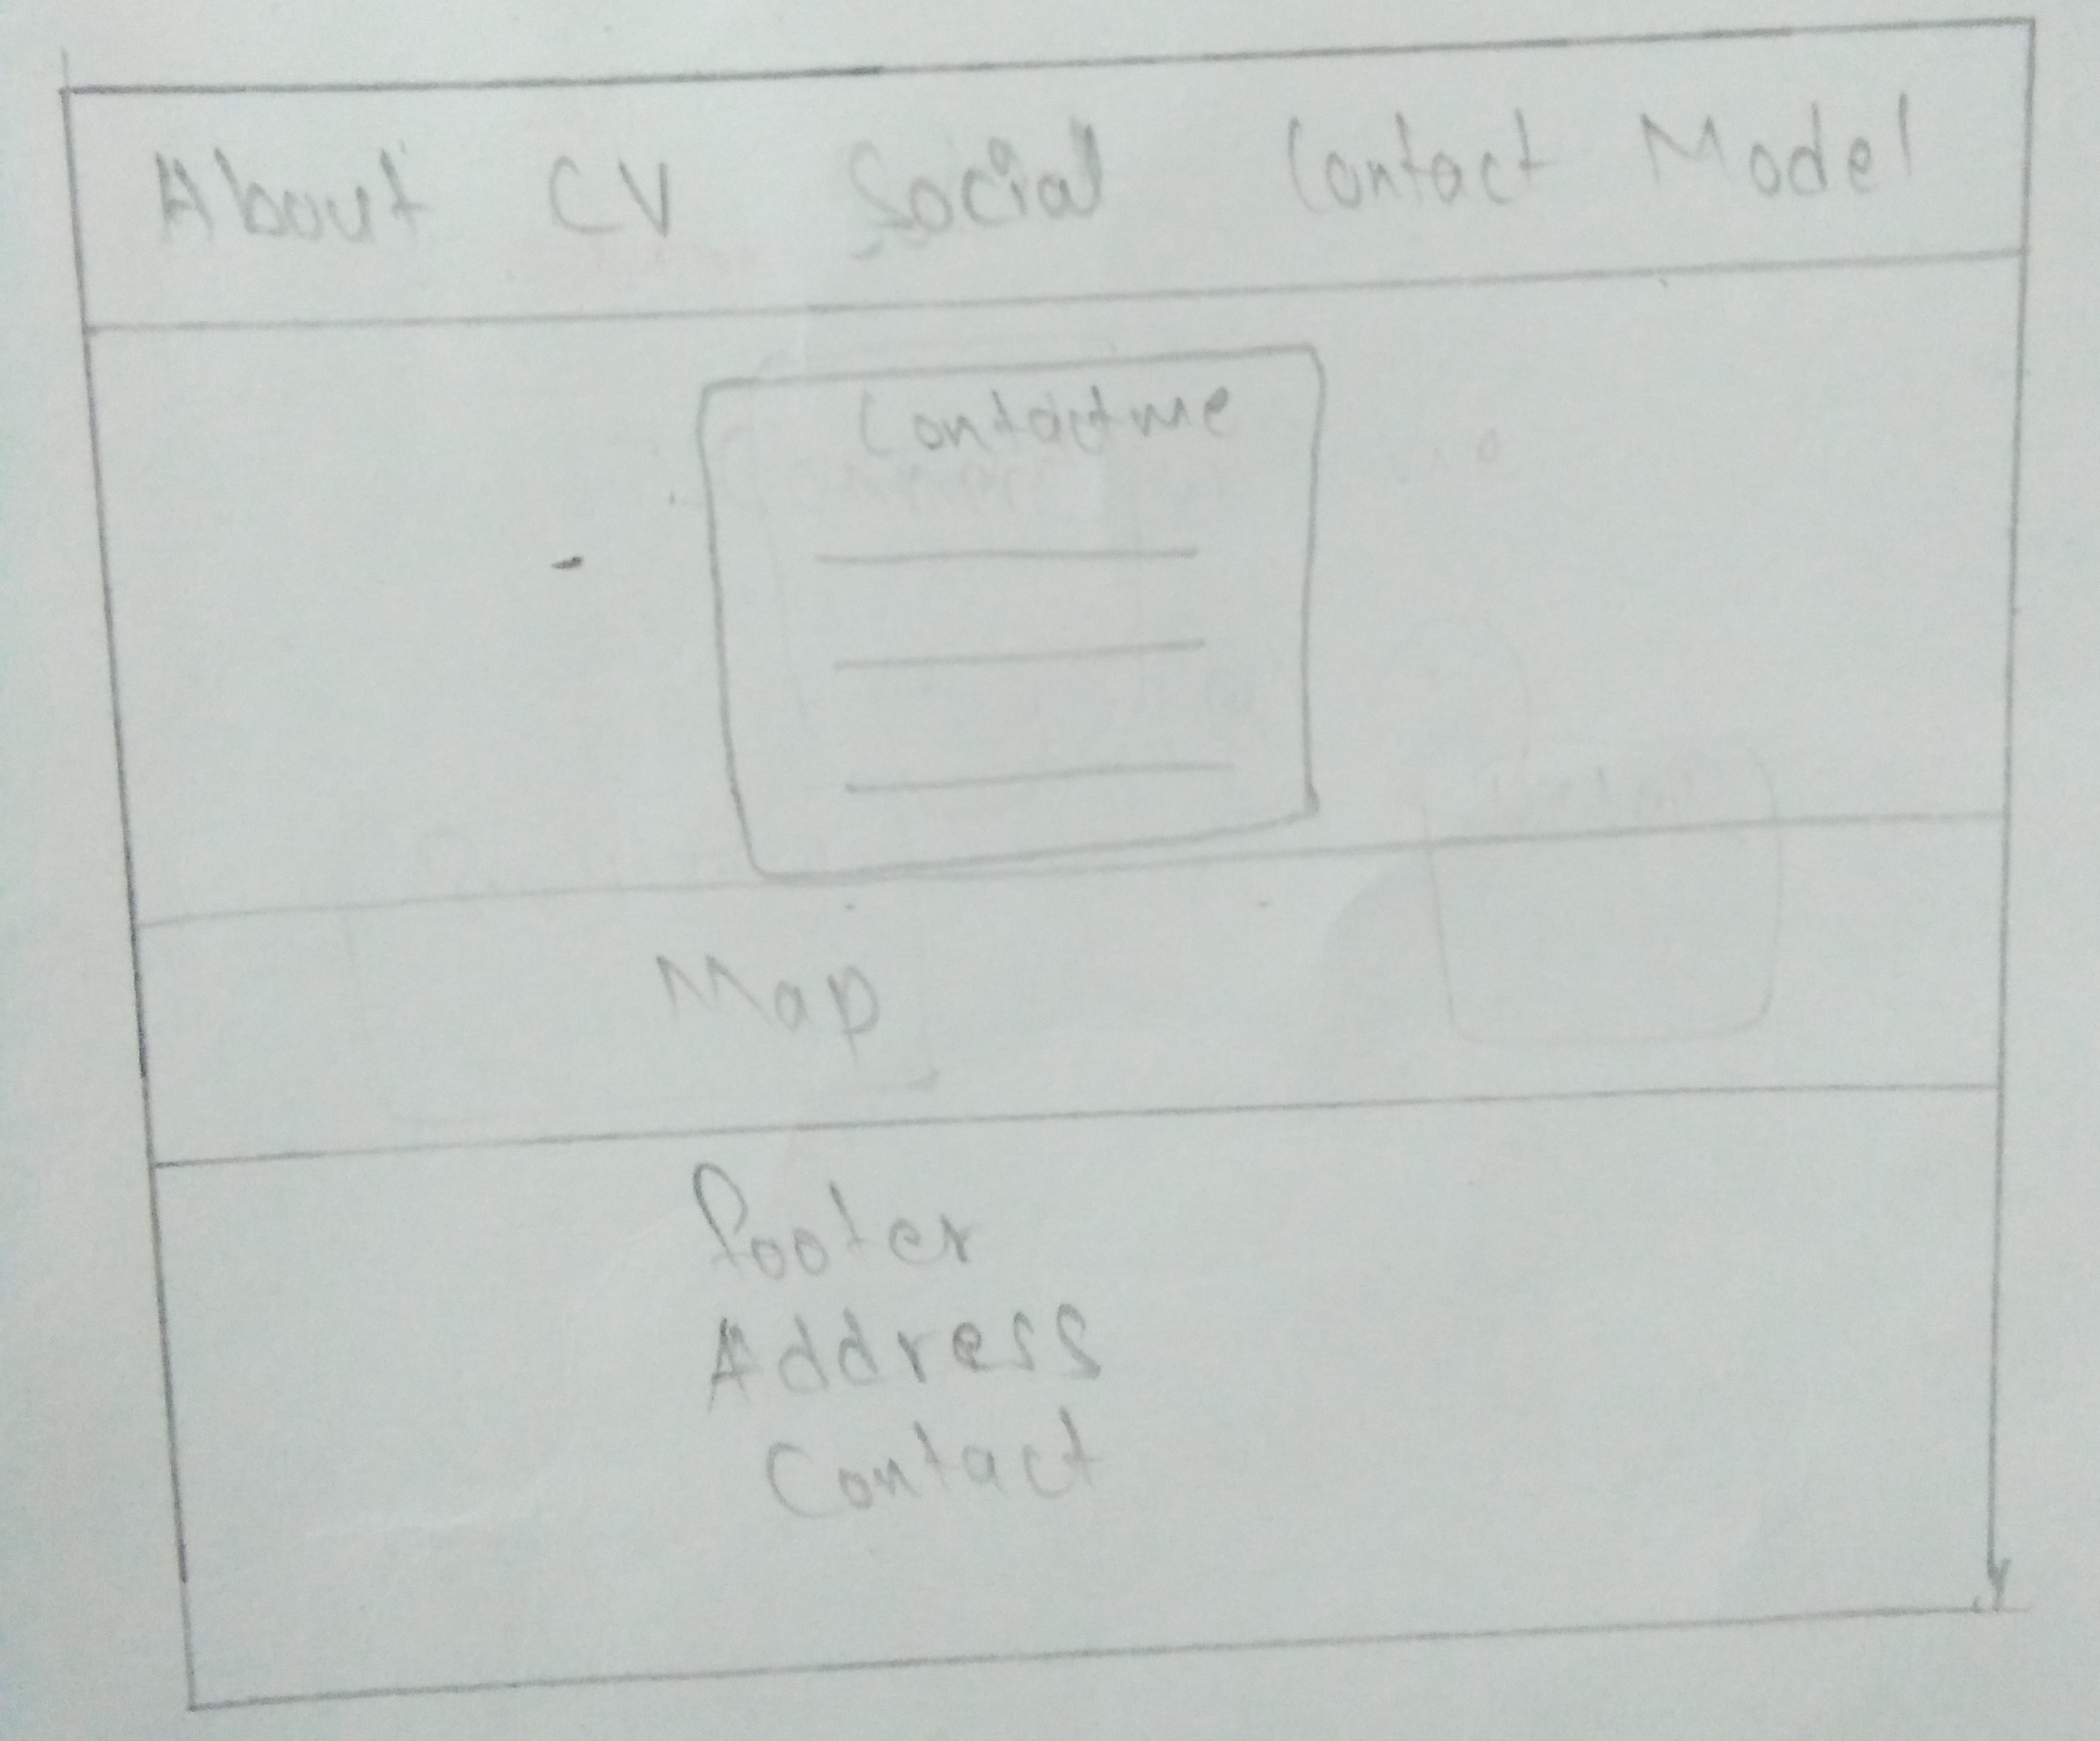 About CV Social Contact Model
Contact me
Map
Footer
Address
Contact